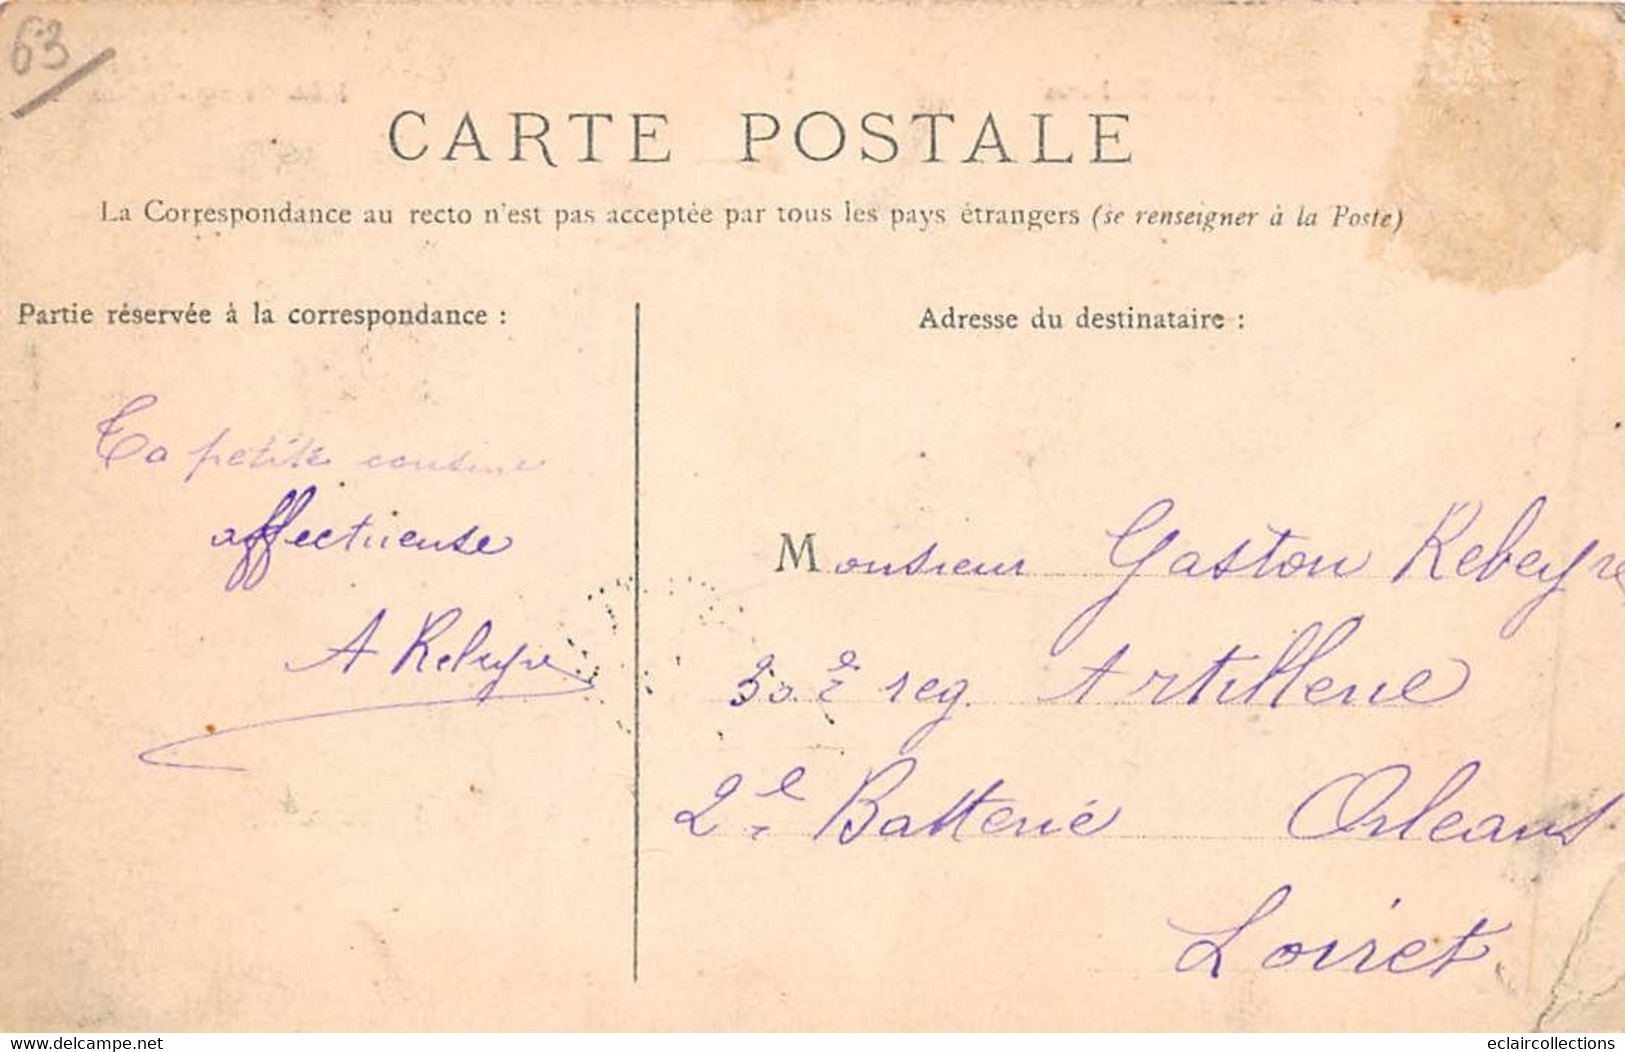 63
CARTE POSTALE
La Correspondance au recto n'est pas acceptée par tous les pays étrangers (se renseigner à la Poste)
Partie réservée à la correspondance :
Ta petite cousine
affectueuse
A Rebeyre
Adresse du destinataire :
Monsieur Gaston Rebeyre
30.e reg. Artillerie
2e Batterie Orleans
Loiret.
www.delcampe.net
eclaircollections